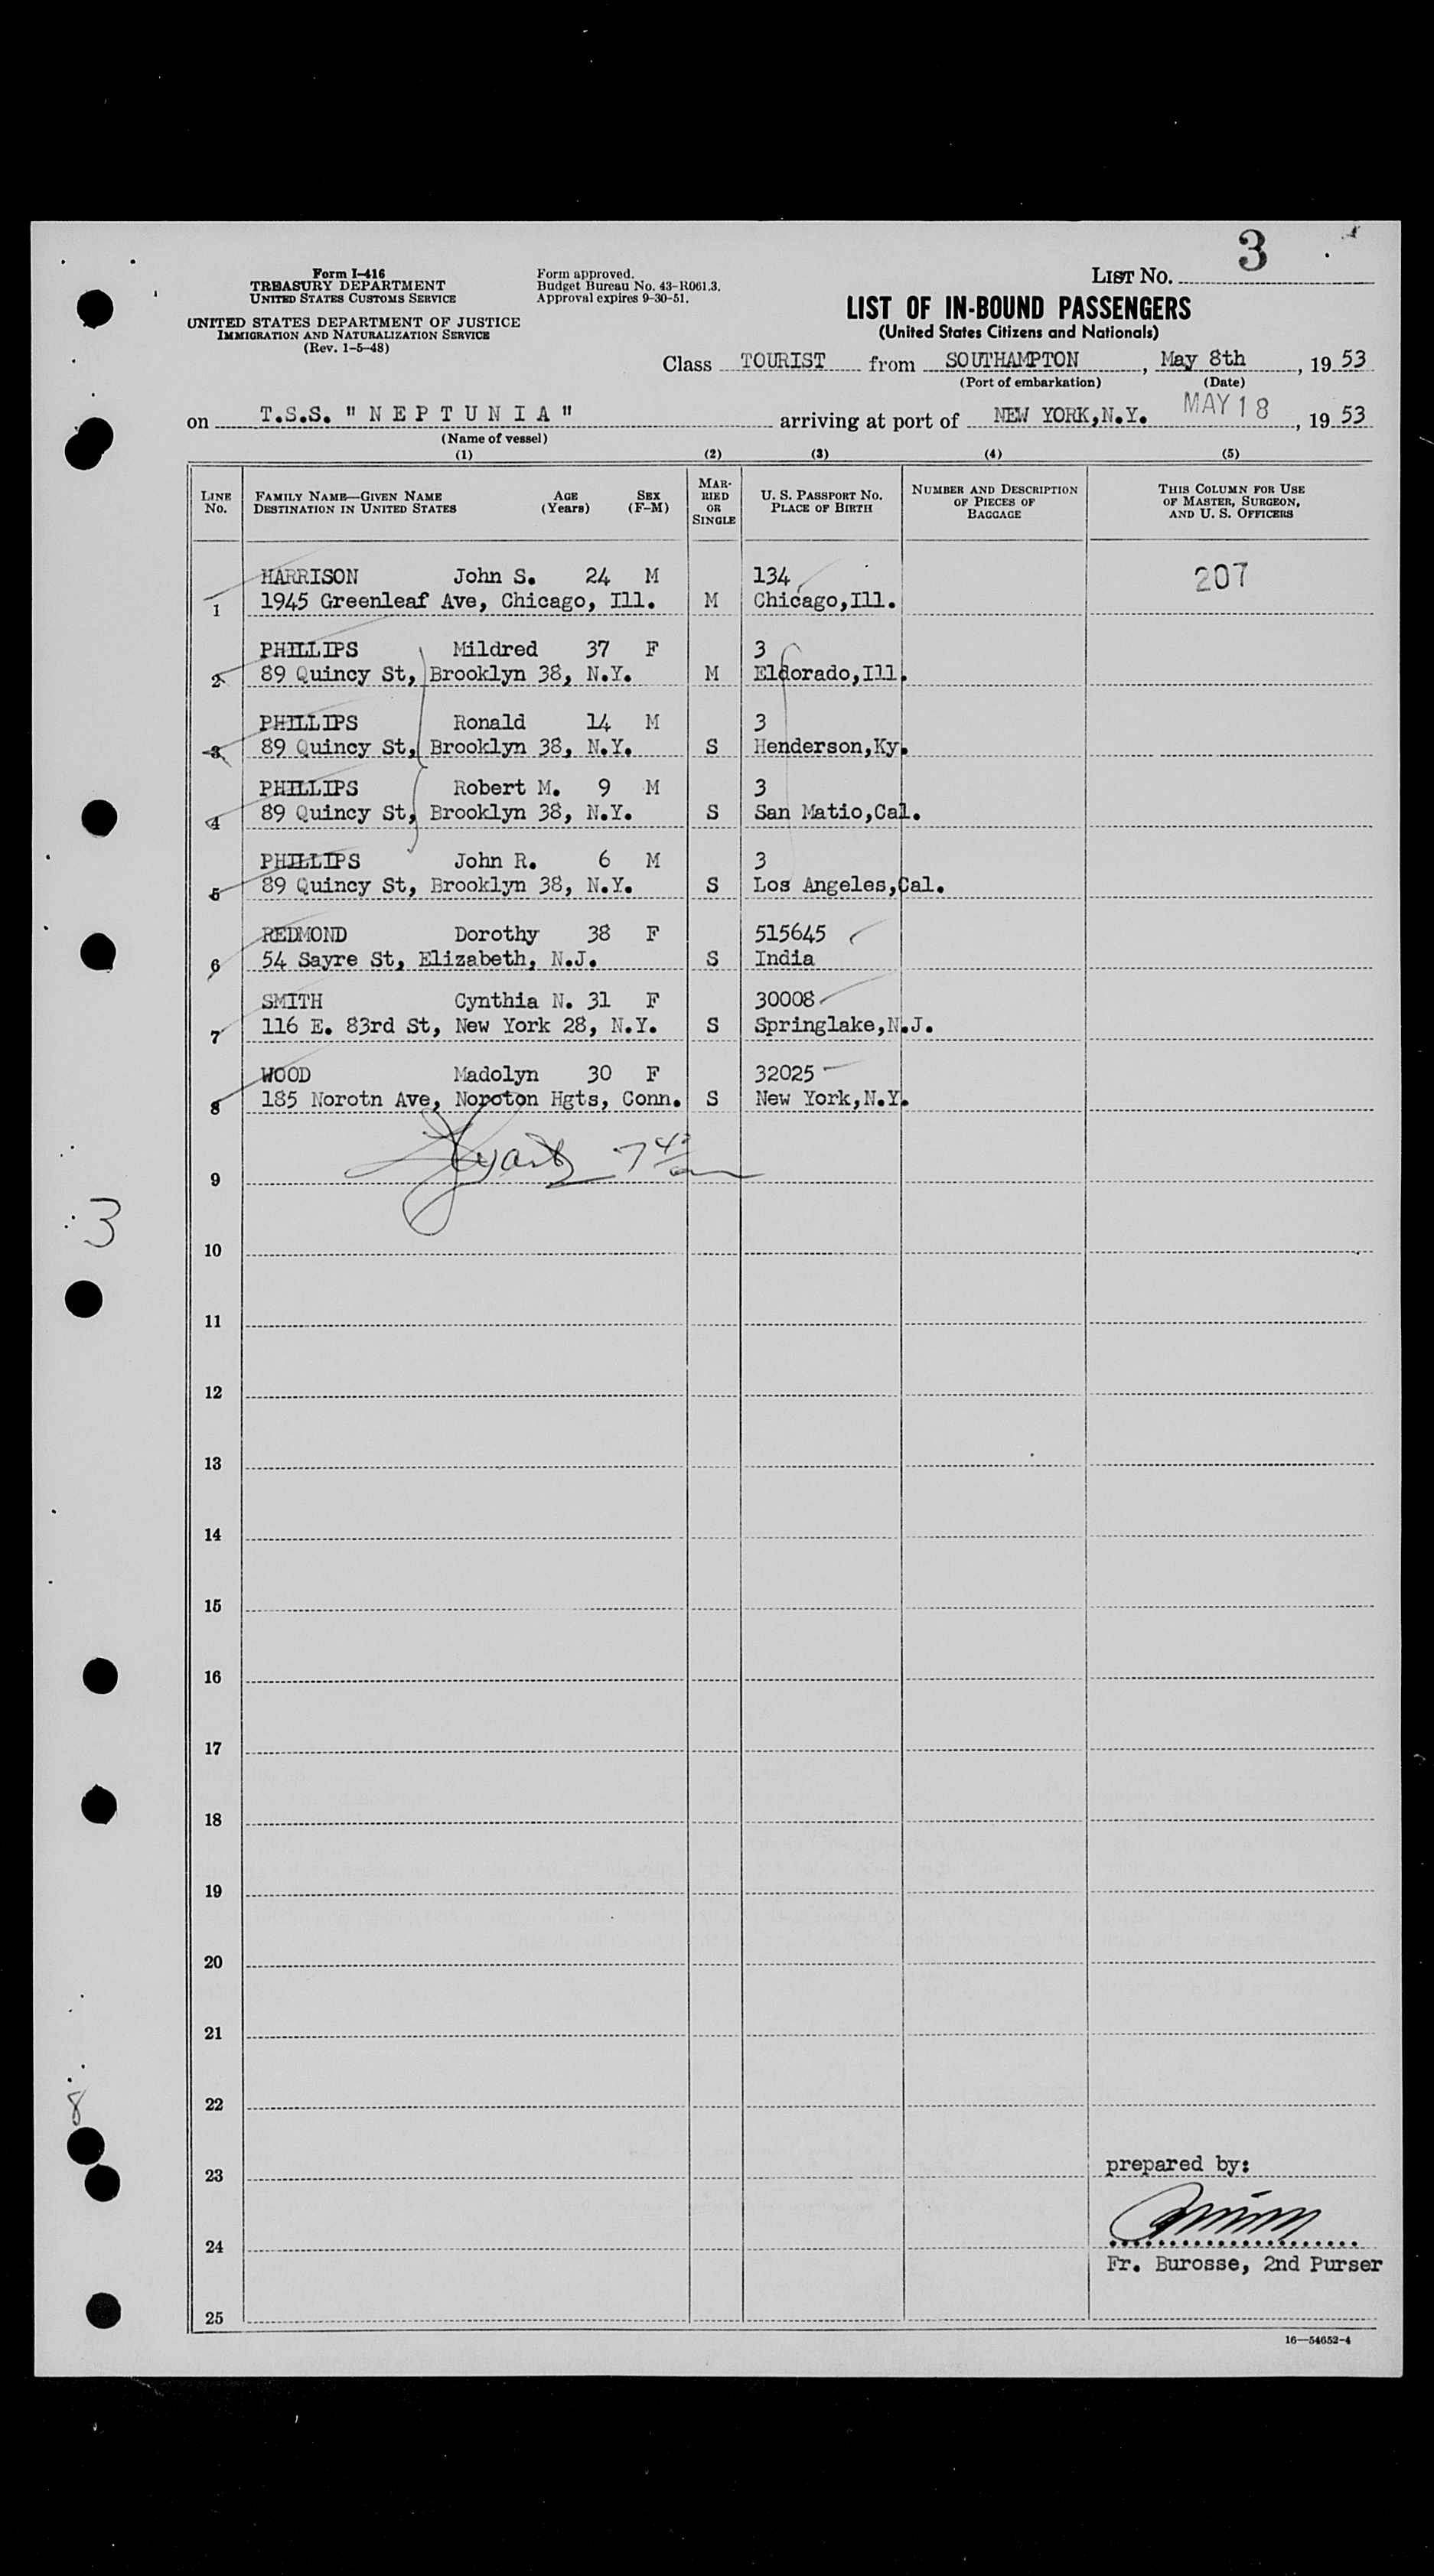 3
Form I-416
TREASURY DEPARTMENT
UNITED STATES CUSTOMS SERVICE
UNITED STATES DEPARTMENT OF JUSTICE
IMMIGRATION AND NATURALIZATION SERVICE
(Rev. 1-5-48)
Form approved.
Budget Bureau No. 43-R061.3.
Approval expires 9-30-51.
LIST NO.
LIST OF IN-BOUND PASSENGERS
(United States Citizens and Nationals)
Class TOURIST from SOUTHAMPTON, May 8th, 19 53
(Port of embarkation) (Date)
on T.S.S. " N E P T U N I A " arriving at port of NEW YORK,N.Y. MAY 18, 19 53
(Name of vessel)
(1) (2) (3) (4) (5)
LINE NO.
FAMILY NAME—GIVEN NAME AGE SEX
DESTINATION IN UNITED STATES (Years) (F-M)
MAR-
RIED
OR
SINGLE
U. S. PASSPORT NO.
PLACE OF BIRTH
NUMBER AND DESCRIPTION
OF PIECES OF
BAGGAGE
THIS COLUMN FOR USE
OF MASTER, SURGEON,
AND U. S. OFFICERS
HARRISON John S. 24 M 134 207
1 1945 Greenleaf Ave, Chicago, Ill. M Chicago,Ill.
PHILLIPS Mildred 37 F 3
2 89 Quincy St, Brooklyn 38, N.Y. M Eldorado,Ill.
PHILLIPS Ronald 14 M 3
3 89 Quincy St, Brooklyn 38, N.Y. S Henderson,Ky.
PHILLIPS Robert M. 9 M 3
4 89 Quincy St, Brooklyn 38, N.Y. S San Matio,Cal.
PHILLIPS John R. 6 M 3
5 89 Quincy St, Brooklyn 38, N.Y. S Los Angeles,Cal.
REDMOND Dorothy 38 F 515645
6 54 Sayre St, Elizabeth, N.J. S India
SMITH Cynthia N. 31 F 30008
7 116 E. 83rd St, New York 28, N.Y. S Springlake,N.J.
WOOD Madolyn 30 F 32025
8 185 Norotn Ave, Noroton Hgts, Conn. S New York,N.Y.
9
3
10
11
12
13
14
15
16
17
18
19
20
21
22
8
23
prepared by:
24
Fr. Burosse, 2nd Purser
25
16—54652-4